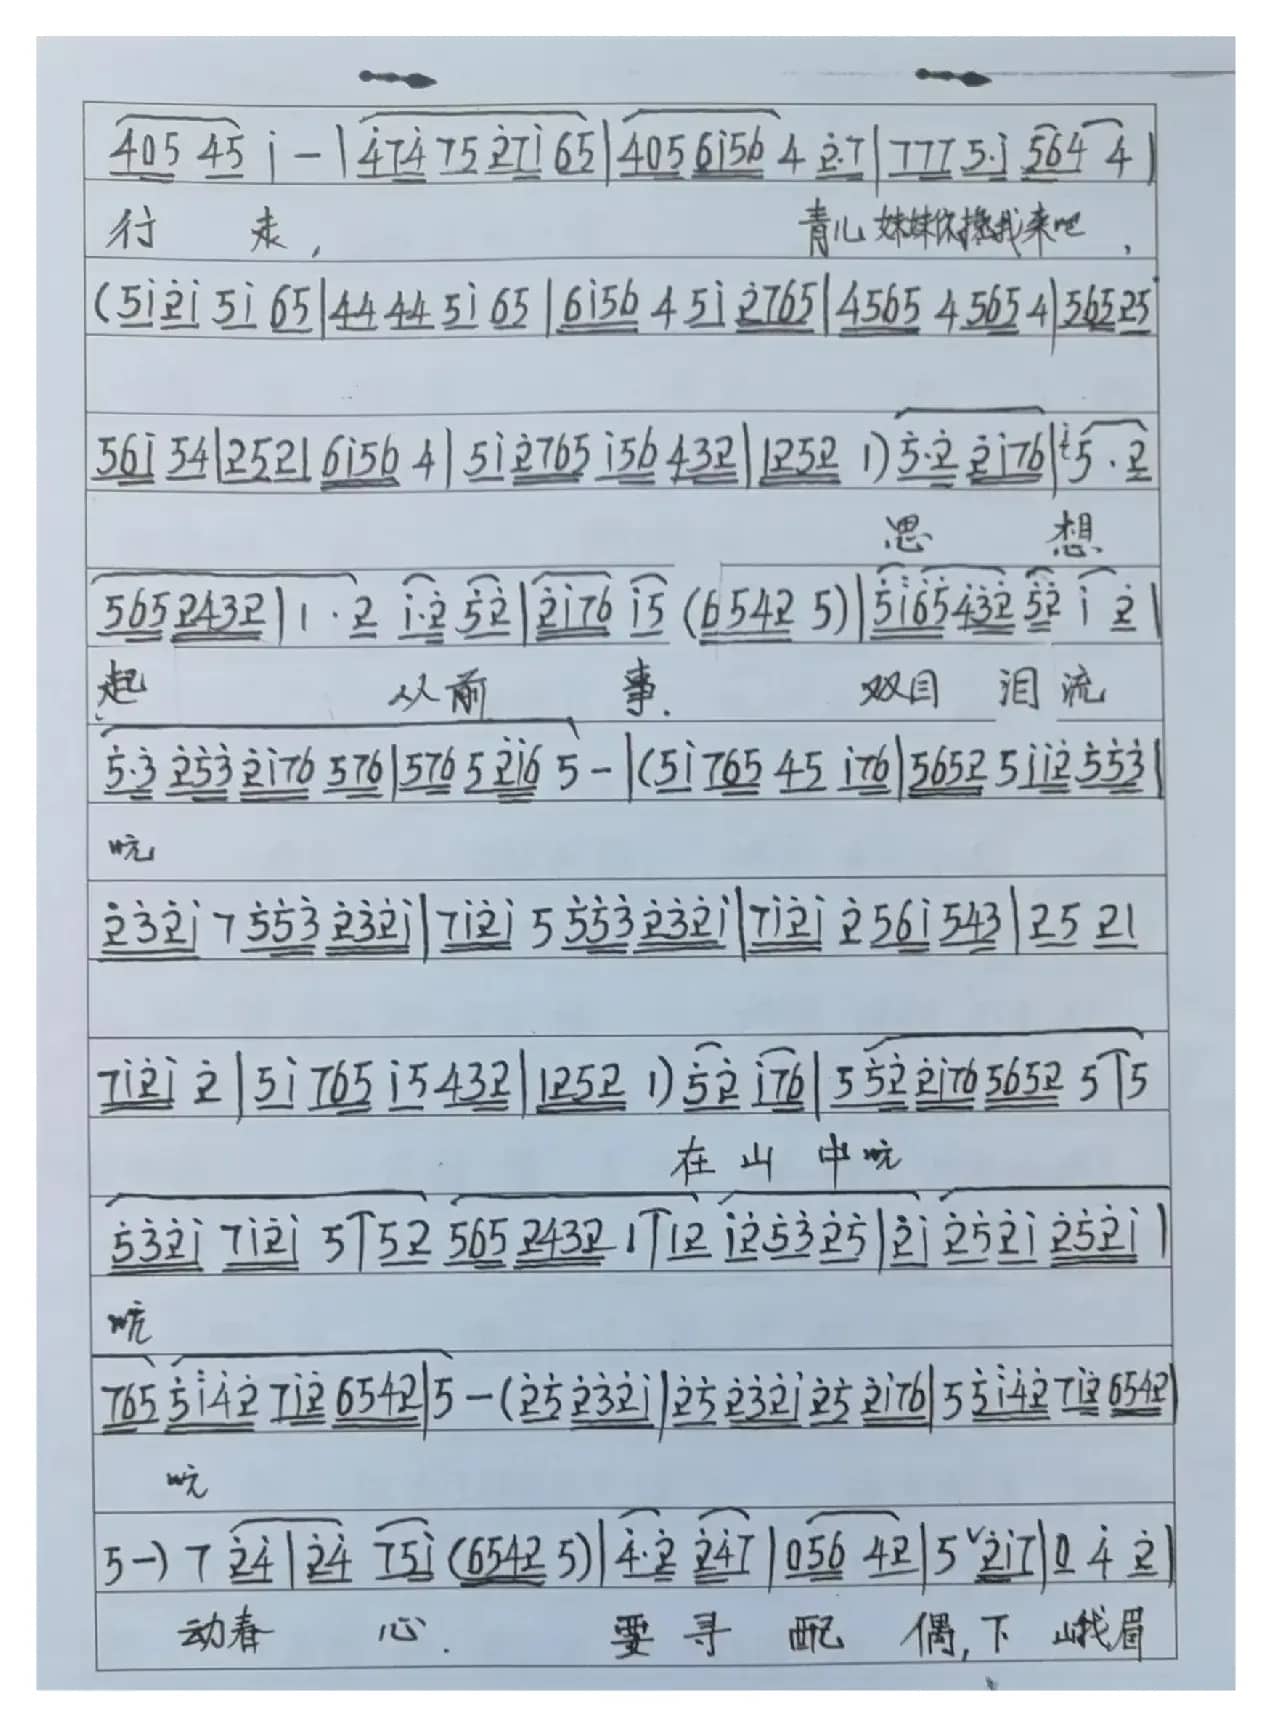 405 45 i - | 474 75 271 65 | 405 6i56 4 2·7 | 777 5·i 564 4 |
行 走, 青儿妹妹你搀我来吧,
(5i2i 5i 65 | 44 44 5i 65 | 6i56 4 5i 2765 | 4565 4 565 4 | 565 25
56i 54 | 2521 6i56 4 | 5i 2765 i56 432 | 1252 1) 5·2 2i76 | i5·2
思 想
565 2432 | 1·2 i·2 52 | 2i76 i5 (6542 5) | 5i65 432 52 i 2 |
起 从前 事. 双目 泪流
5·3 253 2i76 576 | 576 5 2i6 5 - | (5i 765 45 i76 | 5652 5i i2 553 |
吭
232i 7 553 232i | 7i2i 5 553 232i | 7i2i 2 56i 543 | 25 21
7i2i 2 | 5i 765 i5 432 | 1252 1) 52 i76 | 5 52 2i76 5652 5 5
在 山 中吭
532i 7i2i 5 52 565 2432 1 12 i2 53 25 | 2i 252i 252i |
吭
765 5i42 7i2 6542 | 5 - (25 232i | 25 232i 25 2i76 | 5 5i42 7i2 6542 |
吭
5-) 7 24 | 24 75i (6542 5) | 4·2 247 | 056 42 | 5 ∨2i7 | 0 4 2 |
动春 心. 要 寻 配 偶,下 峨眉